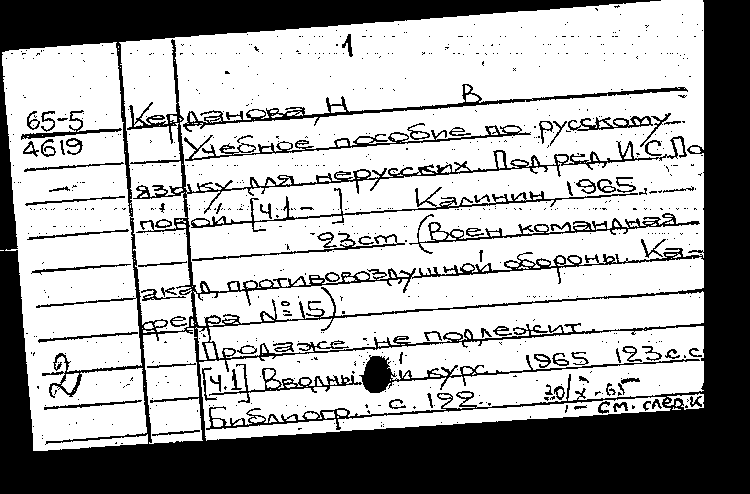 1
65-5 Керданова, Н В
4619 Учебное пособие по русскому
языку для нерусских. Под ред. И.С.По
повой. [Ч.1- ] Калинин, 1965.
23см. (Воен командная
акад. противовоздушной обороны. Ка-
федра №15).
Продаже не подлежит.
2 [Ч.1] Вводный курс. 1965 123с.с
Библиогр.: с. 122. 20/X-65
- см. след.к